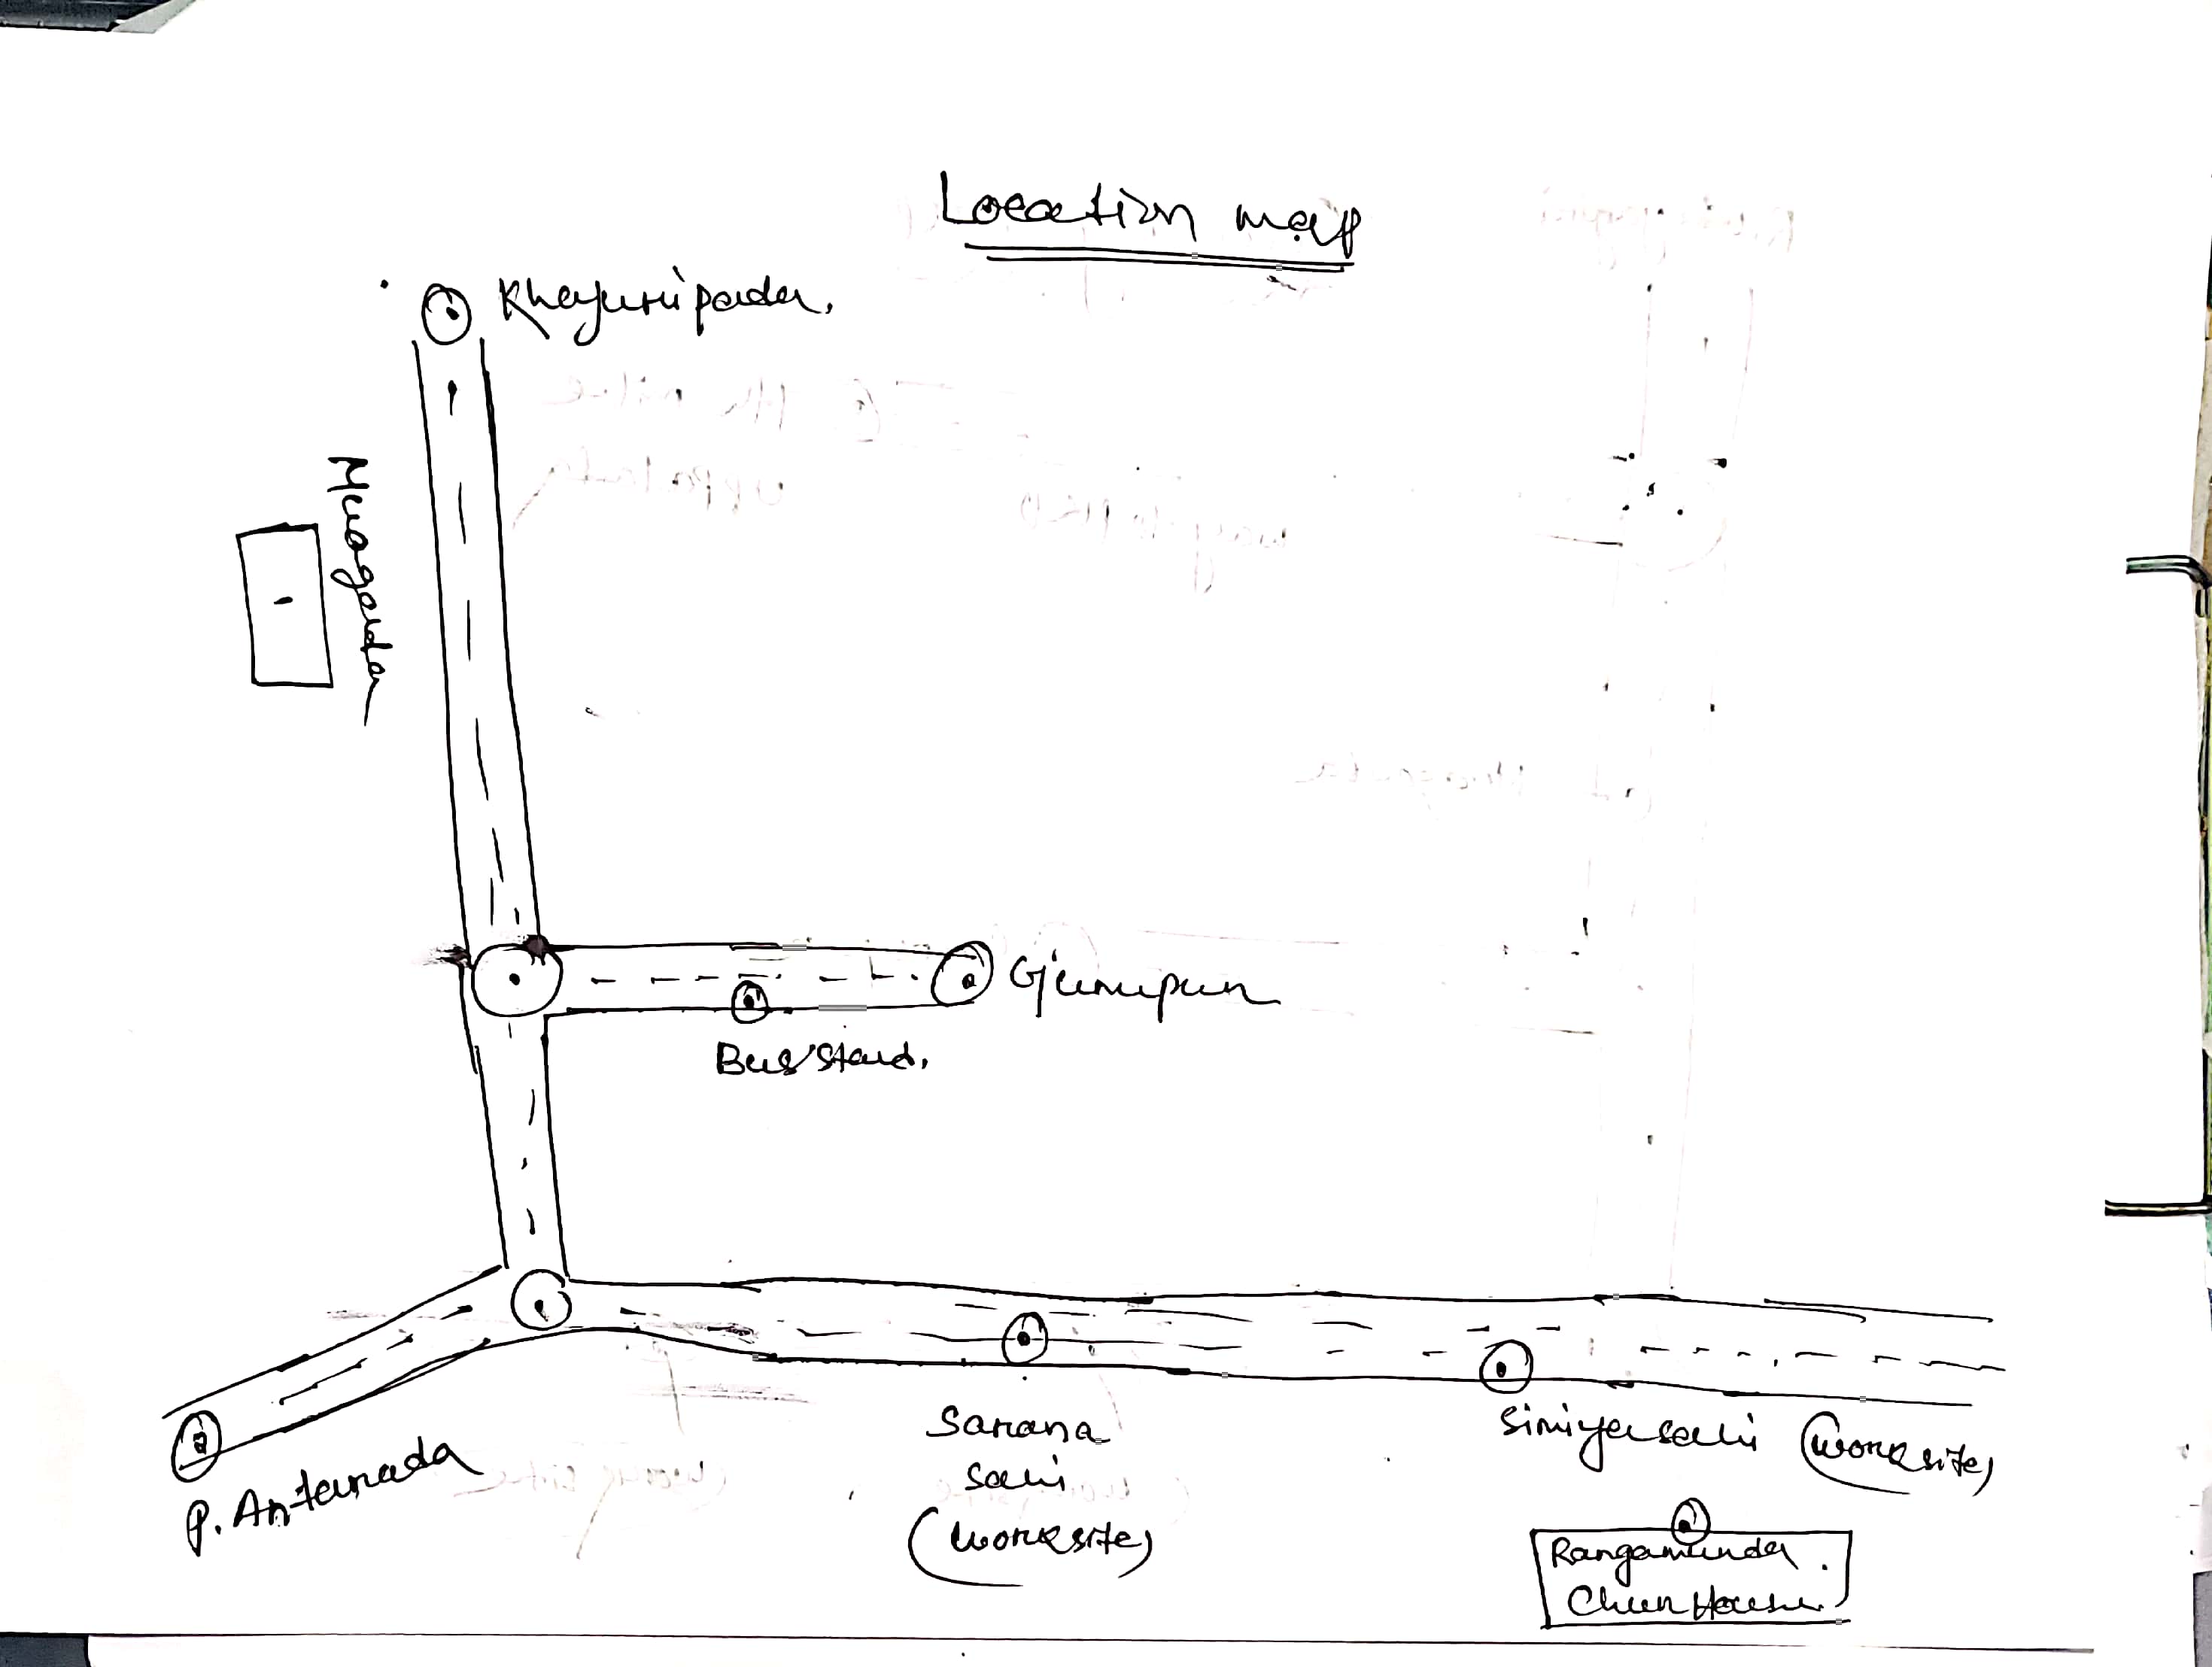 Location map
Khajuripada.
Muagada
Gunupur
Bus stand.
P. Antarada
Sarana
sahi
(worksite)
Simiyasahi (worksite)
Rangamunda